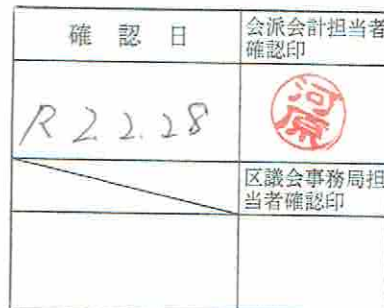 確認日
会派会計担当者
確認印
R 2.2.28
河原
区議会事務局担
当者確認印